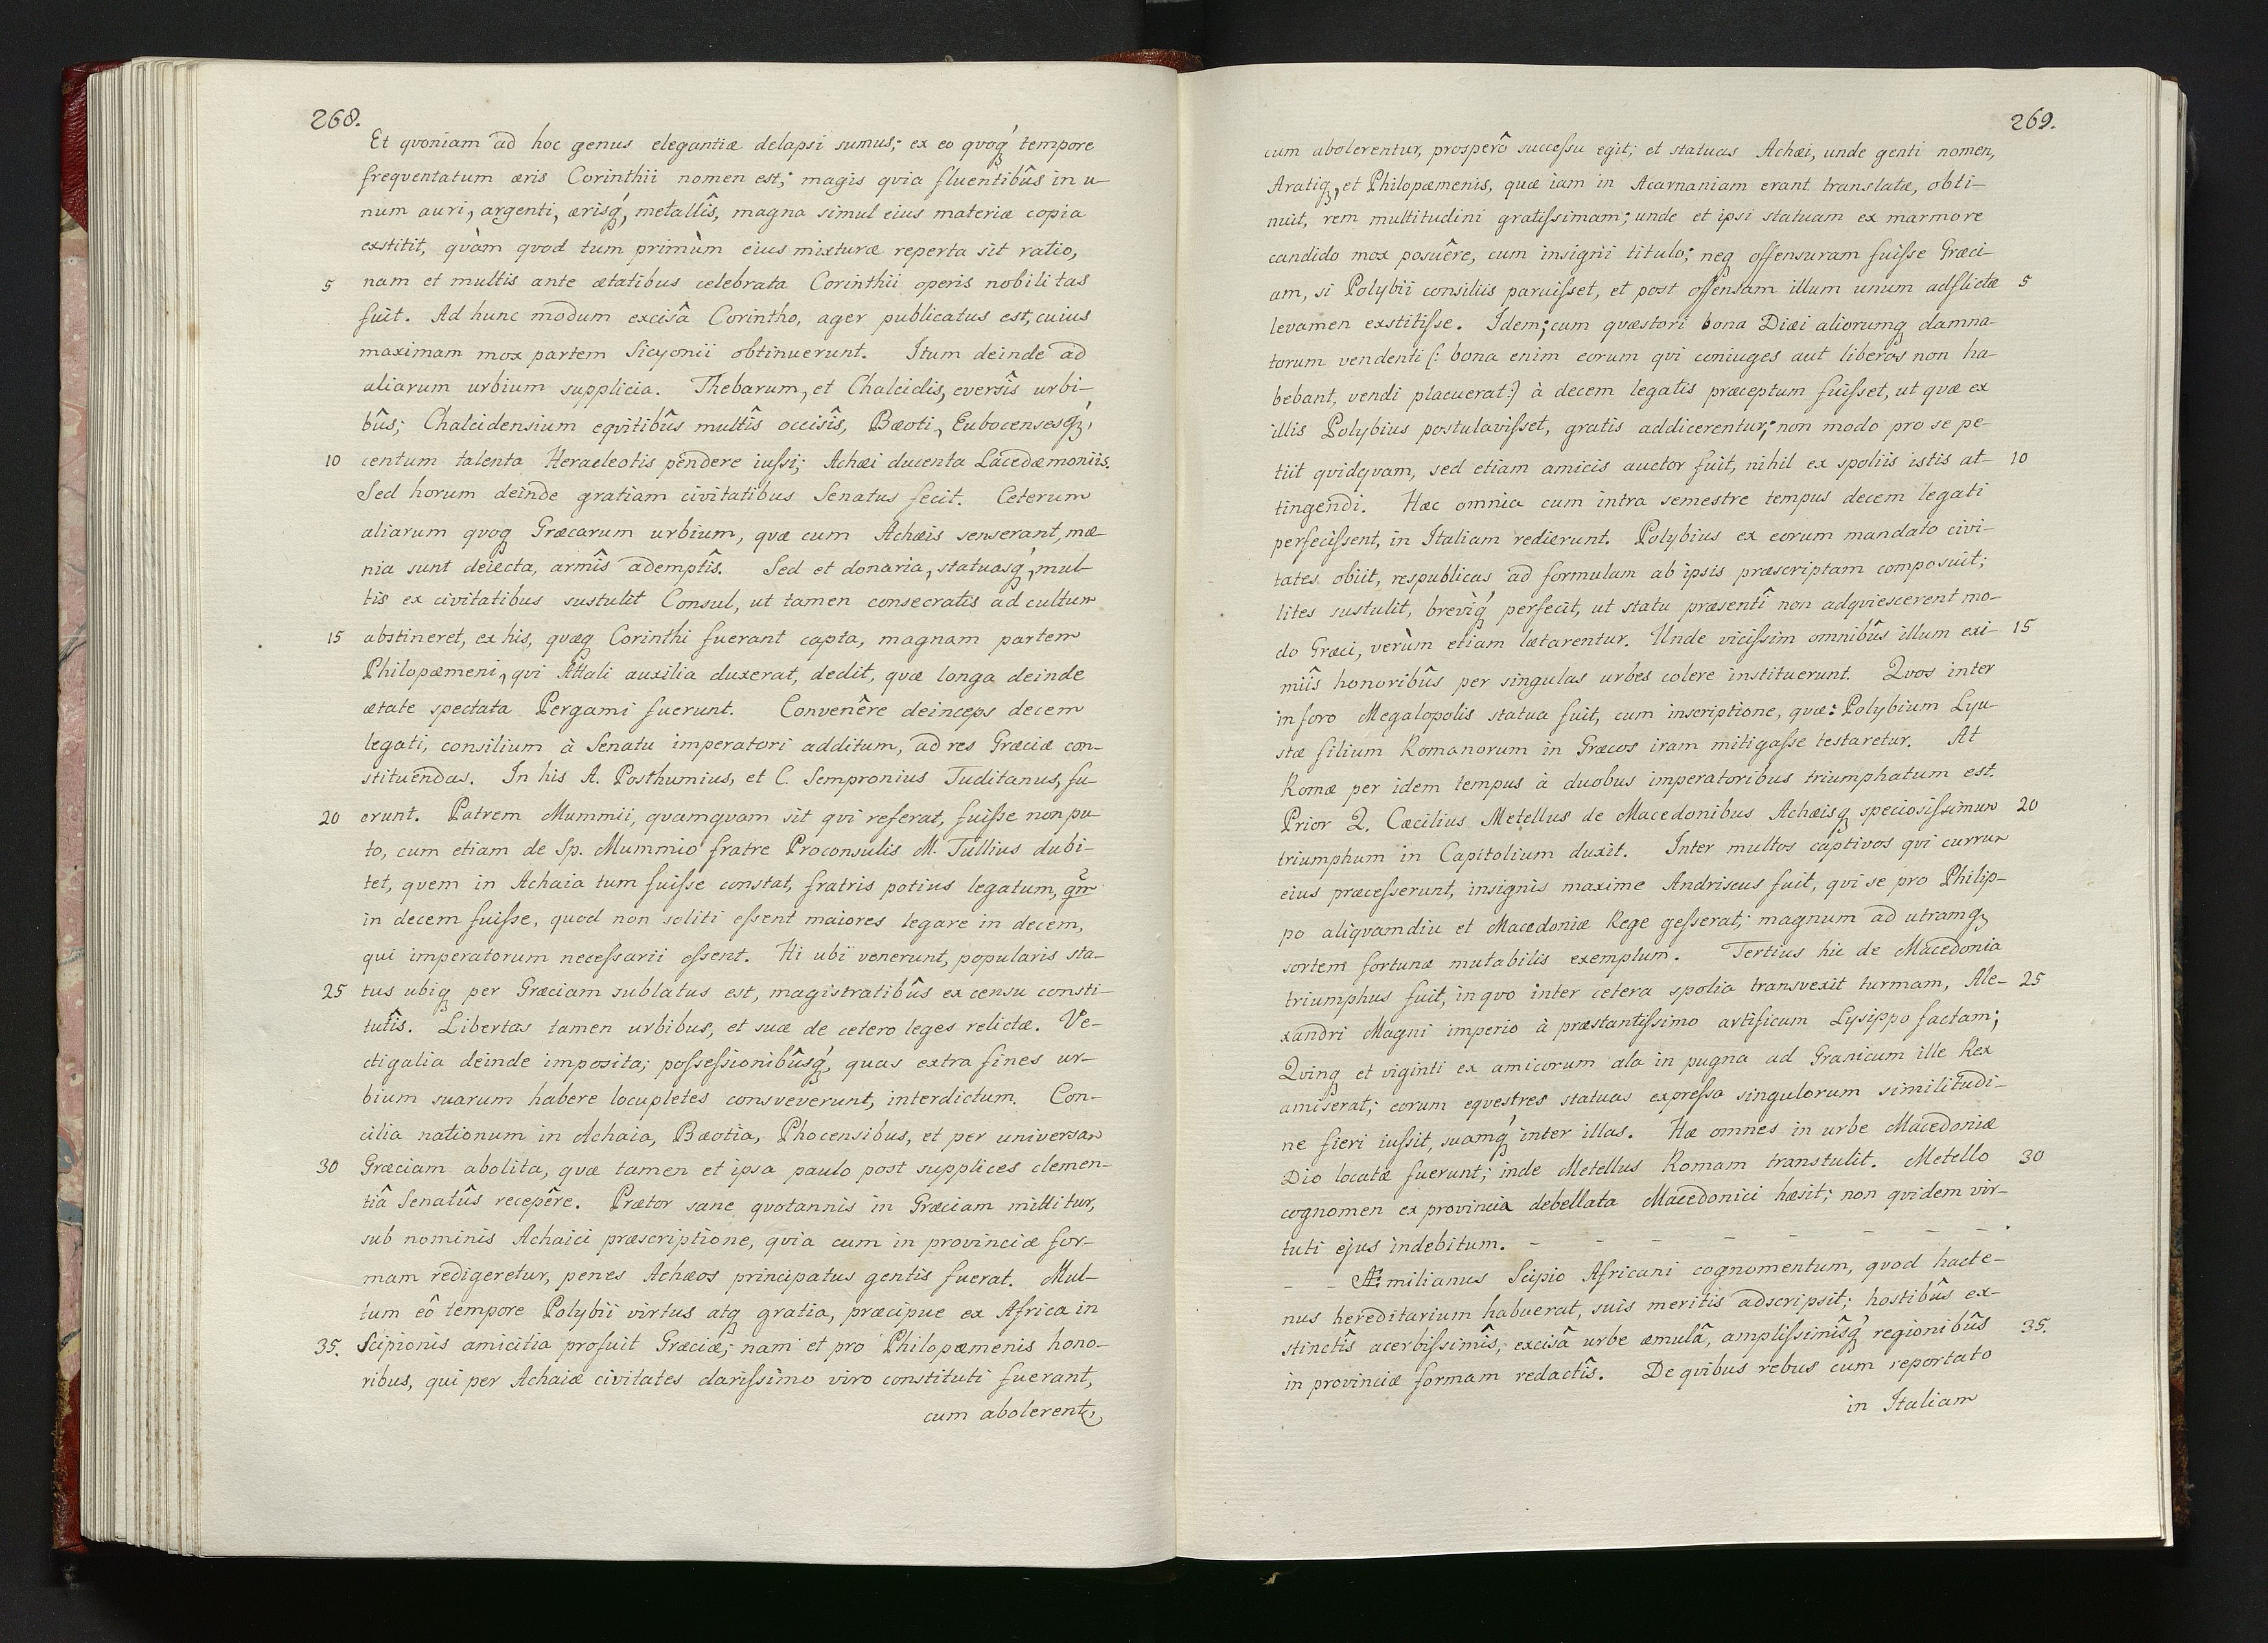 268.
Et qvoniam ad hoc genus elegantiæ delapsi sumus; ex eo qvoq́ tempore
freqventatum æris Corinthii nomen est; magis qvia fluentibûs in u-
num auri, argenti, ærisq́, metallîs, magna simul eius materiæ copia
exstitit, qvàm qvod tum primùm eius mixturæ reperta sit ratio,
5 nam et multis ante ætatibus celebrata Corinthii operis nobilitas
fuit. Ad hunc modum excisâ Corintho, ager publicatus est, cuius
maximam mox partem Sicyonii obtinuerunt. Itum deinde ad
aliarum urbium supplicia. Thebarum, et Chalcidis, eversîs urbi-
bûs; Chalcidensium eqvitibûs multîs occisîs, Bæoti, Euboensesq́,
10 centum talenta Heracleotis pendere iussi; Achæi ducenta Lacedæmoniis.
Sed horum deinde gratiam civitatibus Senatus fecit. Ceterum
aliarum qvoq Græcarum urbium, qvæ cum Achæis senserant, mæ-
nia sunt deiecta, armîs ademptîs. Sed et donaria, statuasq́, mul
tis ex civitatibus sustulit Consul, ut tamen consecratis ad cultum
15 abstineret, ex his, qvæq Corinthi fuerant capta, magnam partem
Philopæmeni, qvi Attali auxilia duxerat, dedit, qvæ longa deinde
ætate spectata Pergami fuerunt. Convenêre deinceps decem
legati, consilium à Senatu imperatori additum, ad res Græciæ con-
stituendas. In his A. Posthumius, et C. Sempronius Tuditanus, fu-
20 erunt. Patrem Mummii, qvamqvam sit qvi referat, fuisse non pu-
to, cum etiam de Sp. Mummio fratre Proconsulis M. Tullius dubi-
tet, qvem in Achaia tum fuisse constat, fratris potius legatum, qm
in decem fuisse, quod non soliti essent maiores legare in decem,
qui imperatorum necessarii essent. Hi ubi venerunt, popularis sta-
25 tus ubiq per Græciam sublatus est, magistratibûs ex censu consti-
tutîs. Libertas tamen urbibus, et suæ de cetero leges relictæ. Ve-
ctigalia deinde imposita; possessionibûsq́, quas extra fines ur-
bium suarum habere locupletes consveverunt, interdictum. Con-
cilia nationum in Achaia, Bæotia, Phocensibus, et per universam
30 Græciam abolita, qvæ tamen et ipsa paulo post supplices clemen-
tiâ Senatûs recepêre. Prætor sane qvotannis in Græciam mittitur,
sub nominis Achaici præscriptione, qvia cum in provinciæ for-
mam redigeretur, penes Achæos principatus gentis fuerat. Mul-
tum eô tempore Polybii virtus atq gratia, præcipue ex Africa in
35. Scipionis amicitia profuit Græciæ; nam et pro Philopæmenis hono-
ribus, qui per Achaiæ civitates clarissimo viro constituti fuerant,
cum abolerent,
269.
cum abolerentur, prosperô successu egit; et statuas Achæi, unde genti nomen,
Aratiq, et Philopæmenis, quæ iam in Acarnaniam erant translatæ, obti-
nuit, rem multitudini gratissimam; unde et ipsi statuam ex marmore
candido mox posuêre, cum insigni titulo; neq offensuram fuisse Græci-
am, si Polybii consiliis paruisset, et post offensam illum unum adflictæ 5
levamen exstitisse. Idem; cum qvæstori bona Diæi aliorumq damna-
torum vendenti (: bona enim eorum qvi coniuges aut liberos non ha-
bebant, vendi placuerat:) à decem legatis præceptum fuisset, ut qvæ ex
illis Polybius postulavisset, gratis addicerentur; non modo pro se pe-
tiit qvidqvam, sed etiam amicis auctor fuit, nihil ex spoliis istis at- 10
tingendi. Hæc omnia cum intra semestre tempus decem legati
perfecissent, in Italiam redierunt. Polybius ex eorum mandato civi-
tates obiit, respublicas ad formulam ab ipsis præscriptam composuit;
lites sustulit, brevìq́ perfecit, ut statu præsentî non adqviescerent mo-
do Græci, verùm etiam lætarentur. Unde vicissim omnibûs illum exi- 15
miîs honoribûs per singulas urbes colere instituerunt. Qvos inter
in foro Megalopolis statua fuit, cum inscriptione, qvæ: Polybium Lyu-
stæ filium Romanorum in Græcos iram mitigasse testaretur. At
Romæ per idem tempus à duobus imperatoribus triumphatum est.
Prior Q. Cæcilius Metellus de Macedonibus Achæisq speciosissimum 20
triumphum in Capitolium duxit. Inter multos captivos qvi currum
eius præcesserunt, insignis maxime Andriscus fuit, qvi se pro Philip-
po aliqvamdiu et Macedoniæ Rege gesserat; magnum ad utramq
sortem fortunæ mutabilis exemplum. Tertius hic de Macedonia
triumphus fuit, in qvo inter cetera spolia transvexit turmam, Ale- 25
xandri Magni imperio à præstantissimo artificum Lysippo factam;
Qvinq et viginti ex amicorum ala in pugna ad Granicum ille Rex
amiserat; eorum eqvestres statuas expressa singulorum similitudi-
ne fieri iussit, suamq́ inter illas. Hæ omnes in urbe Macedoniæ
Dio locatæ fuerunt; inde Metellus Romam transtulit. Metello 30
cognomen ex provincia debellata Macedonici hæsit; non qvidem vir-
tuti ejus indebitum. - - - - - - -
- - Æmilianus Scipio Africani cognomentum, qvod hacte-
nus hereditarium habuerat, suis meritis adscripsit; hostibûs ex-
stinctîs acerbissimîs; excisâ urbe æmulâ, amplissimîsq́ regionibûs 35.
in provinciæ formam redactîs. De qvibus rebus cum reportato
in Italiam